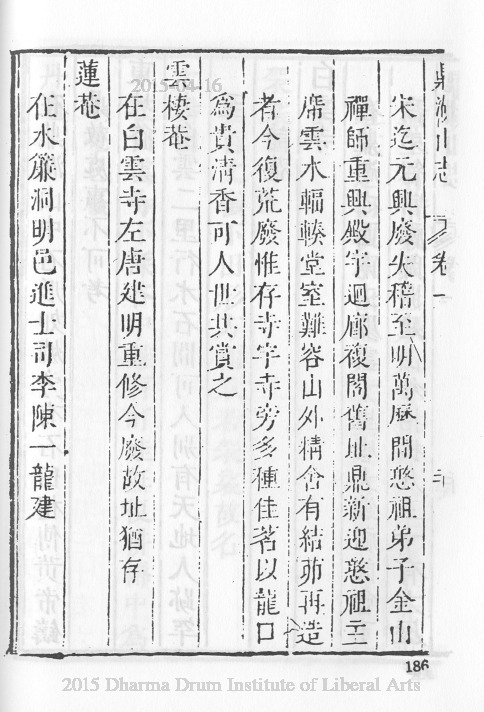 鼎湖山志 卷一
宋迄元興廢失稽至明萬曆間憨祖弟子金山
禪師重興殿宇迴廊複閣舊址鼎新迎憨祖主
席雲水輻輳堂室難容山外精舍有結茆再造
者今復荒廢惟存寺宇寺旁多種佳茗以龍口
為貴清香可人世共賞之
雲棲菴
在白雲寺左唐建明重修今廢故址猶存
蓮菴
在水簾洞明邑進士司李陳一龍建
186
2015-04-16
2015 Dharma Drum Institute of Liberal Arts